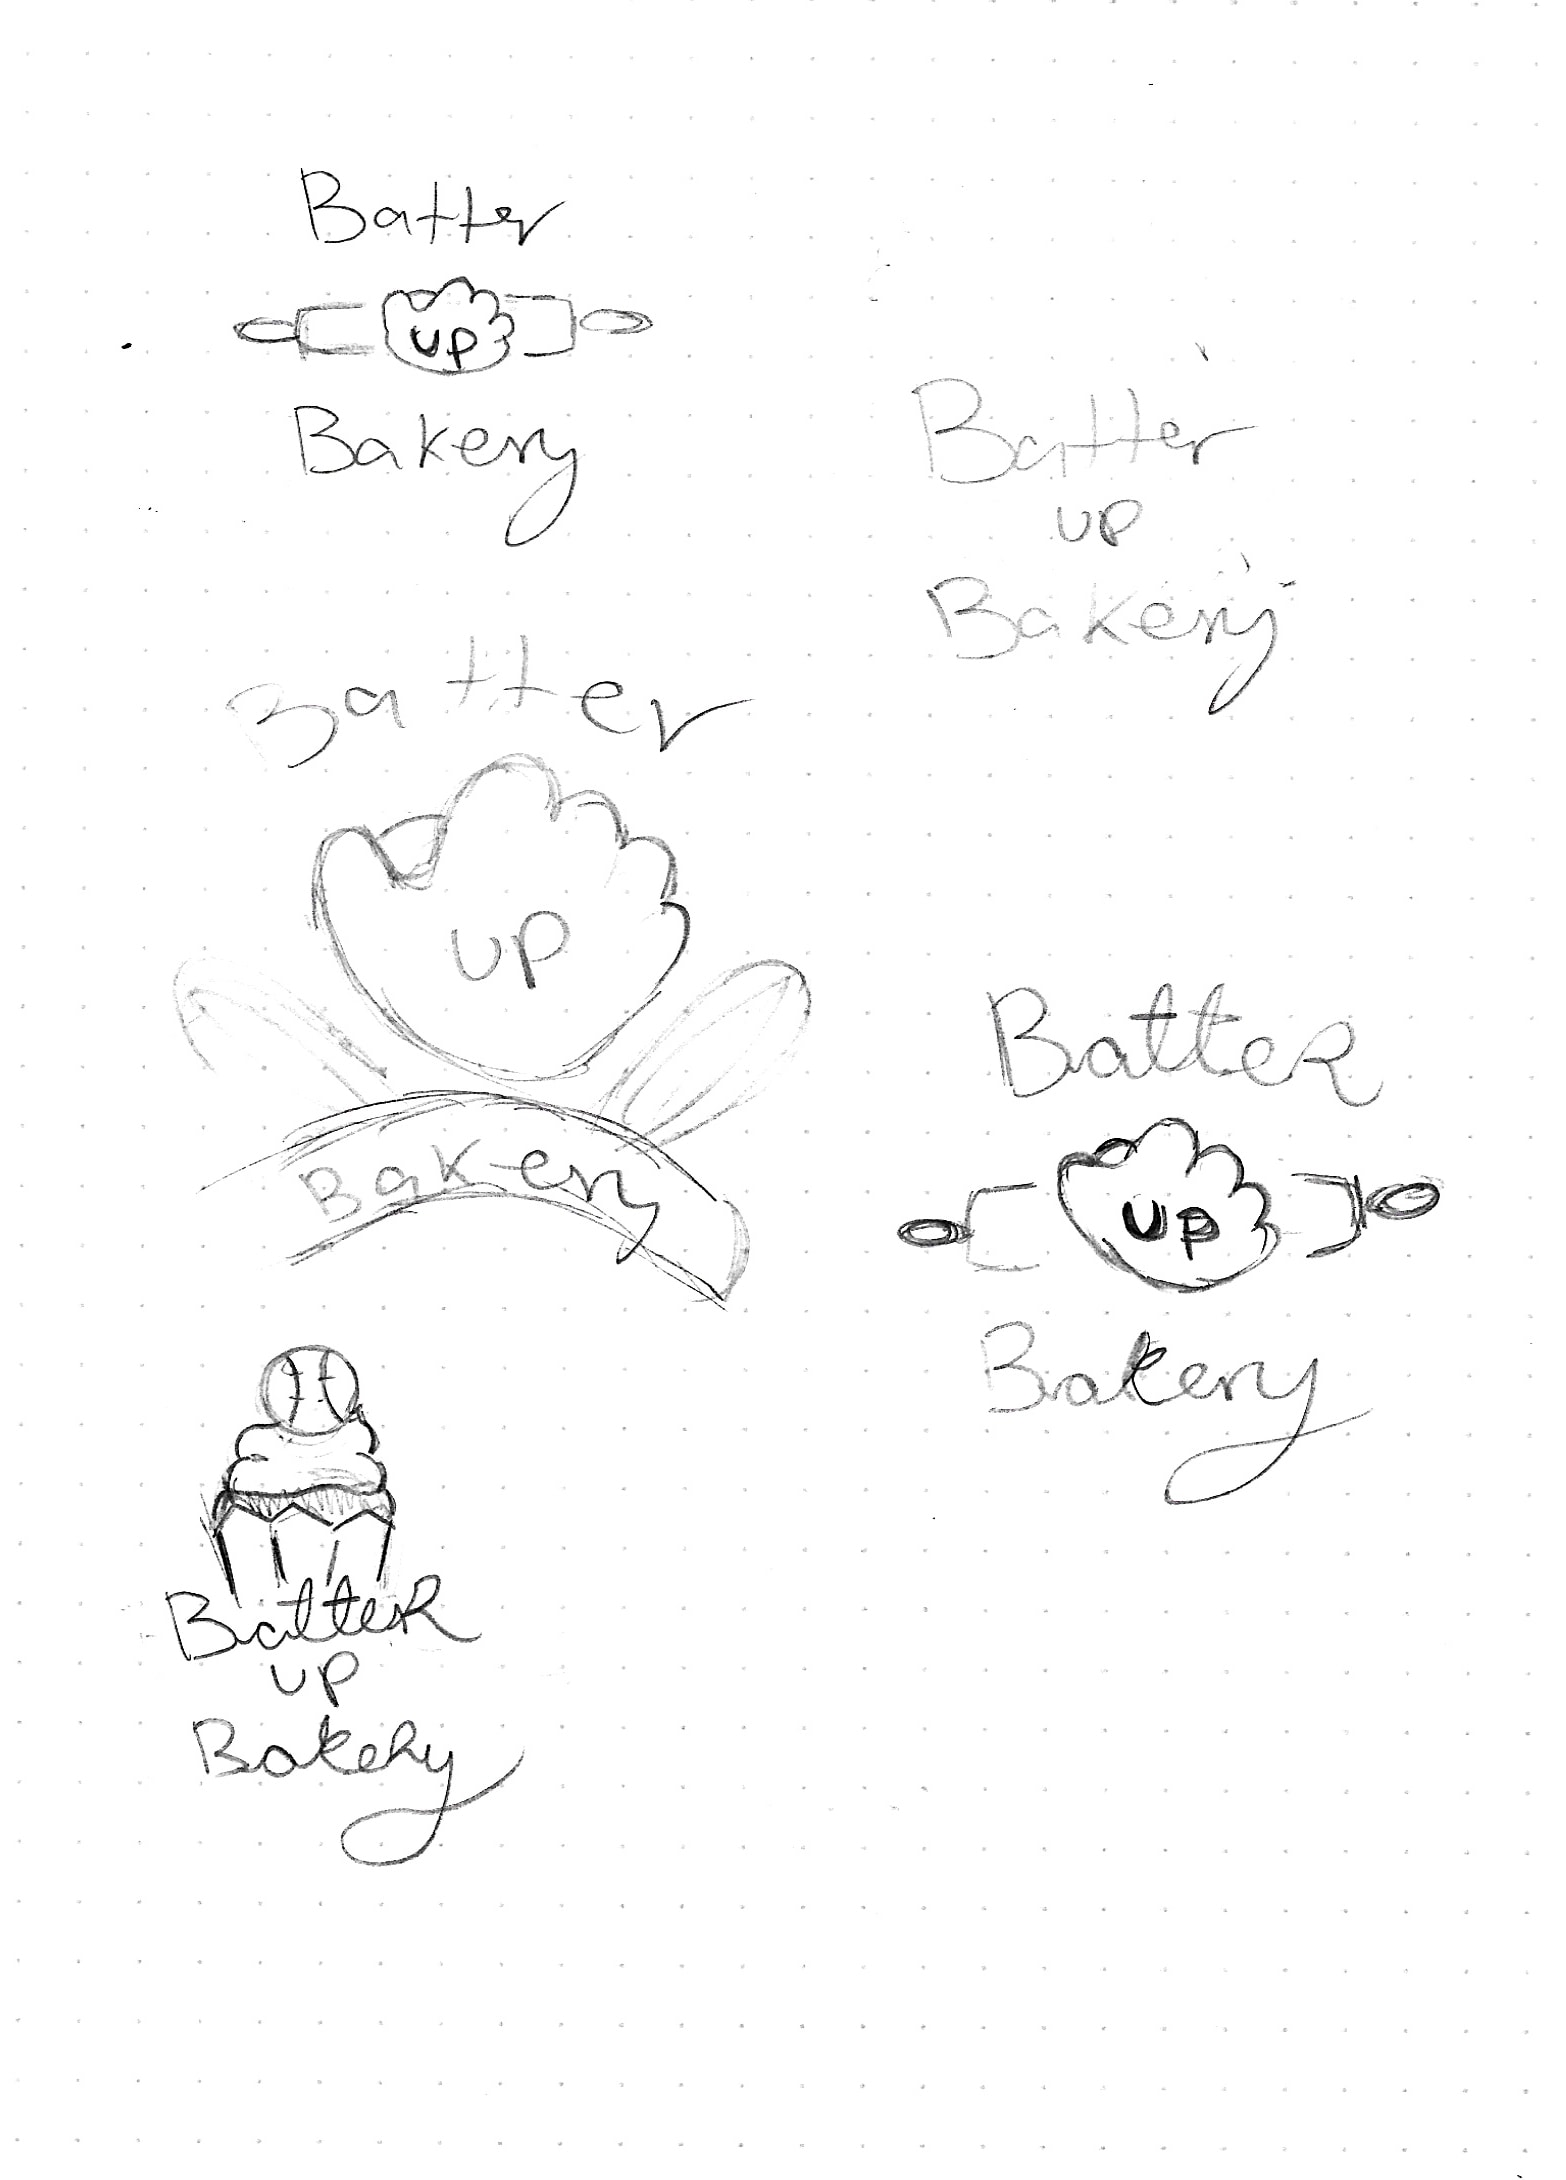 Batter
UP
Bakery
Batter
UP
Bakery
Batter
UP
Bakery
BatteR
UP
Bakery
BatteR
UP
BakeRy